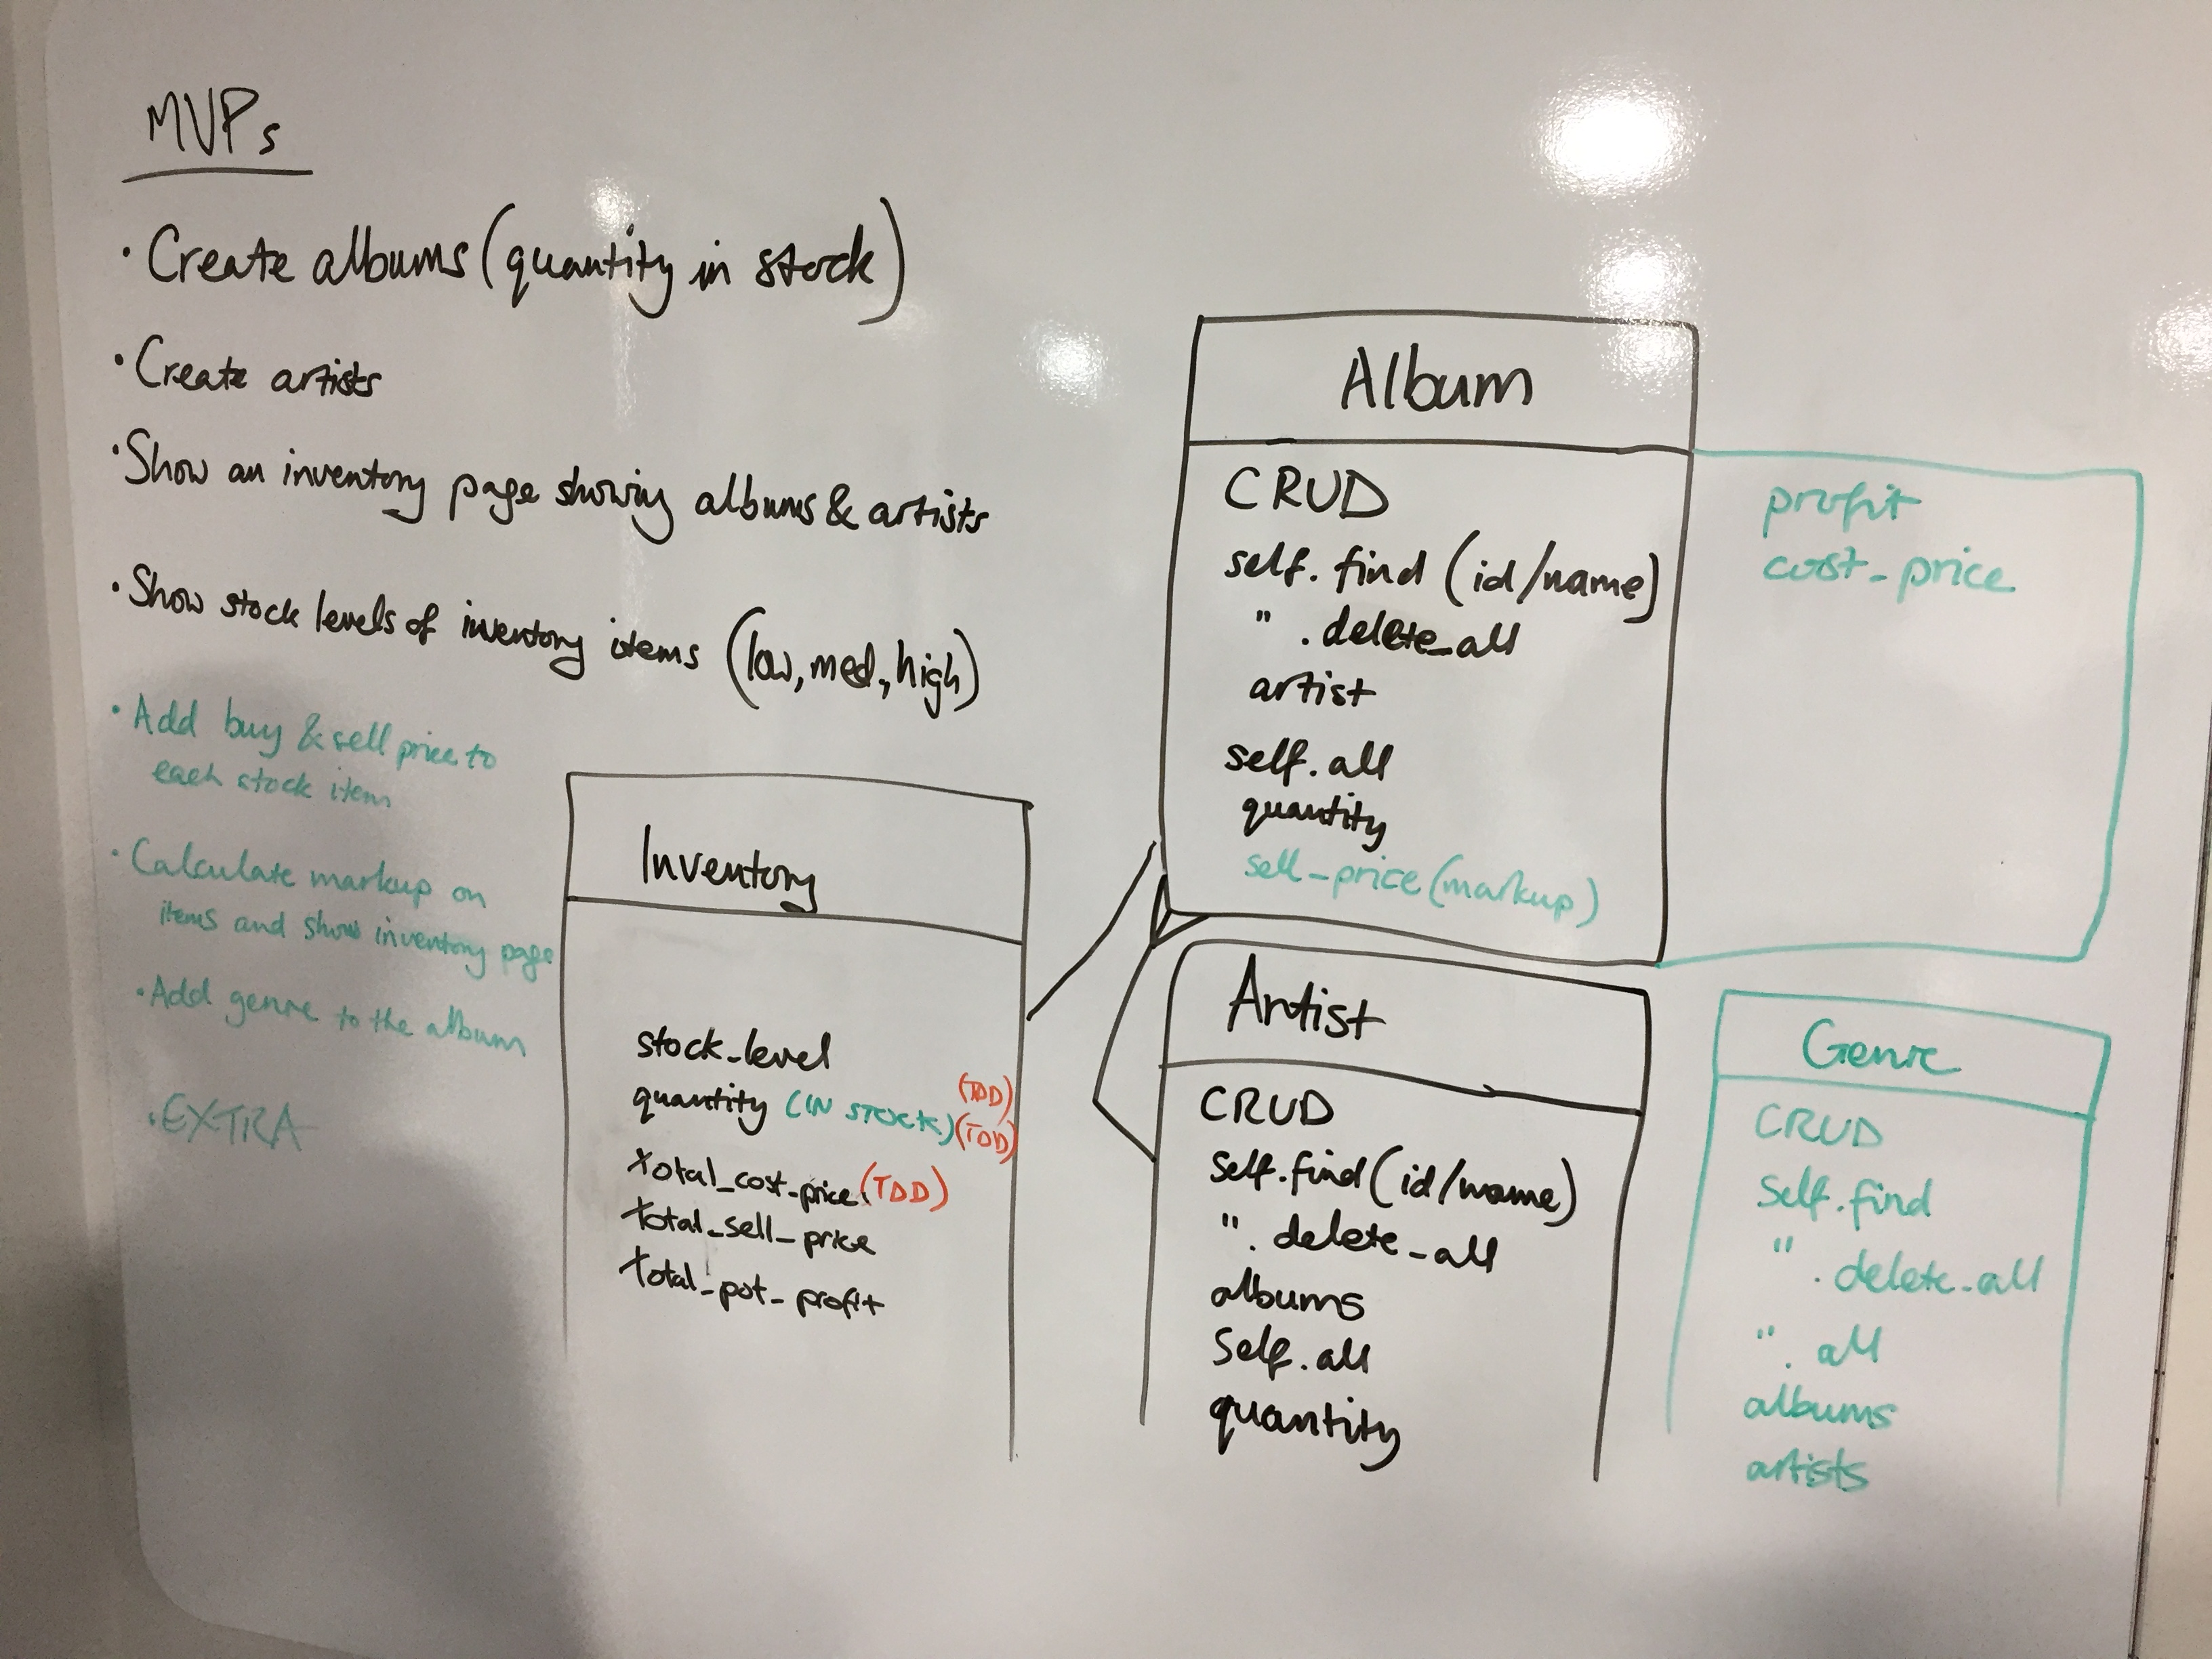 MVPs
· Create albums (quantity in stock)
· Create artists
· Show an inventory page showing albums & artists
· Show stock levels of inventory items (low, med, high)
· Add buy & sell price to
each stock item
· Calculate markup on
items and show inventory page
· Add genre to the album
· EXTRA
Inventory
stock_level
quantity (IN STOCK) (TDD)
(TDD)
total_cost_price (TDD)
total_sell_price
total_pot_profit
Album
CRUD
self.find (id/name)
" .delete_all
artist
self.all
quantity
sell_price (markup)
profit
cost_price
Artist
CRUD
self.find (id/name)
". delete_all
albums
Self.all
quantity
Genre
CRUD
Self.find
" .delete_all
". all
albums
artists